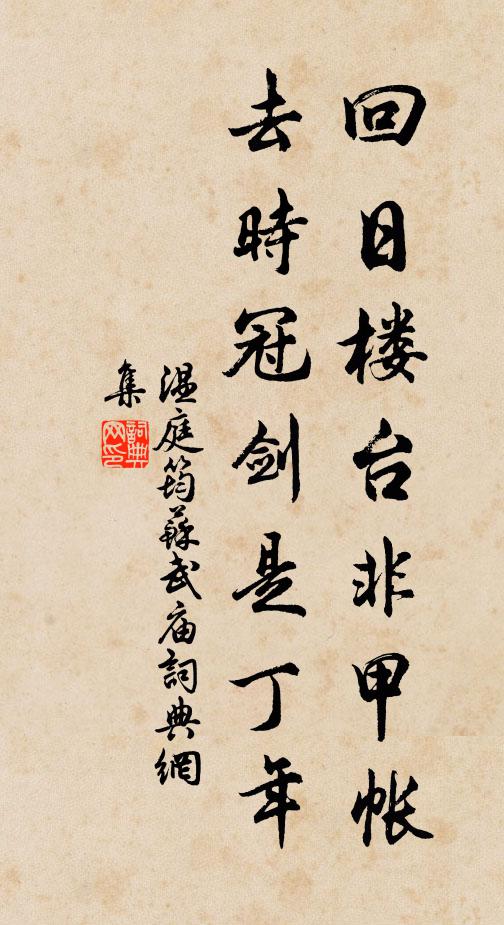 回日楼台非甲帐
去時冠剑是丁年
温庭筠蘇武庙詞典網
集
詞典網印